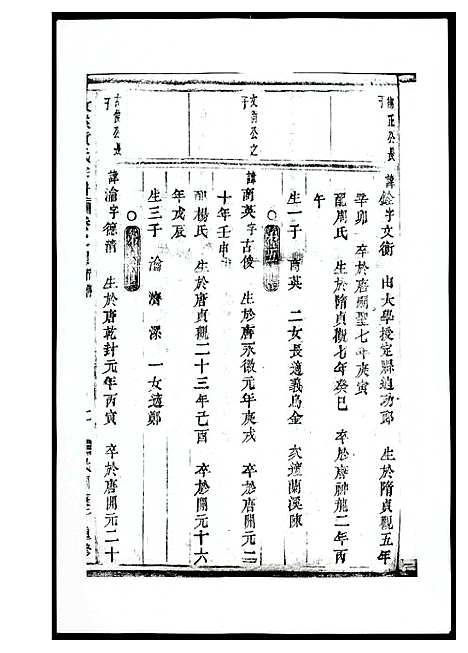 衡正公長子
諱銓字文衡　由太學授定縣迪功郎　生於隋貞觀五年
辛卯　卒於唐開聖七年庚寅
配周氏　生於隋貞觀七年癸巳　卒於唐神龍二年丙
午
生一子　南英　二女長適義烏金　次適蘭溪陳
文衡公之子
諱南英字古俊　生於唐永徽元年庚戌　卒於唐開元二
十年壬申
配楊氏　生於唐貞觀二十三年己酉　卒於開元十六
年戊辰
生三子　淪　濟　深　一女適鄭
古俊公長子
諱淪字德清　生於唐乾封元年丙寅　卒於唐開元二十